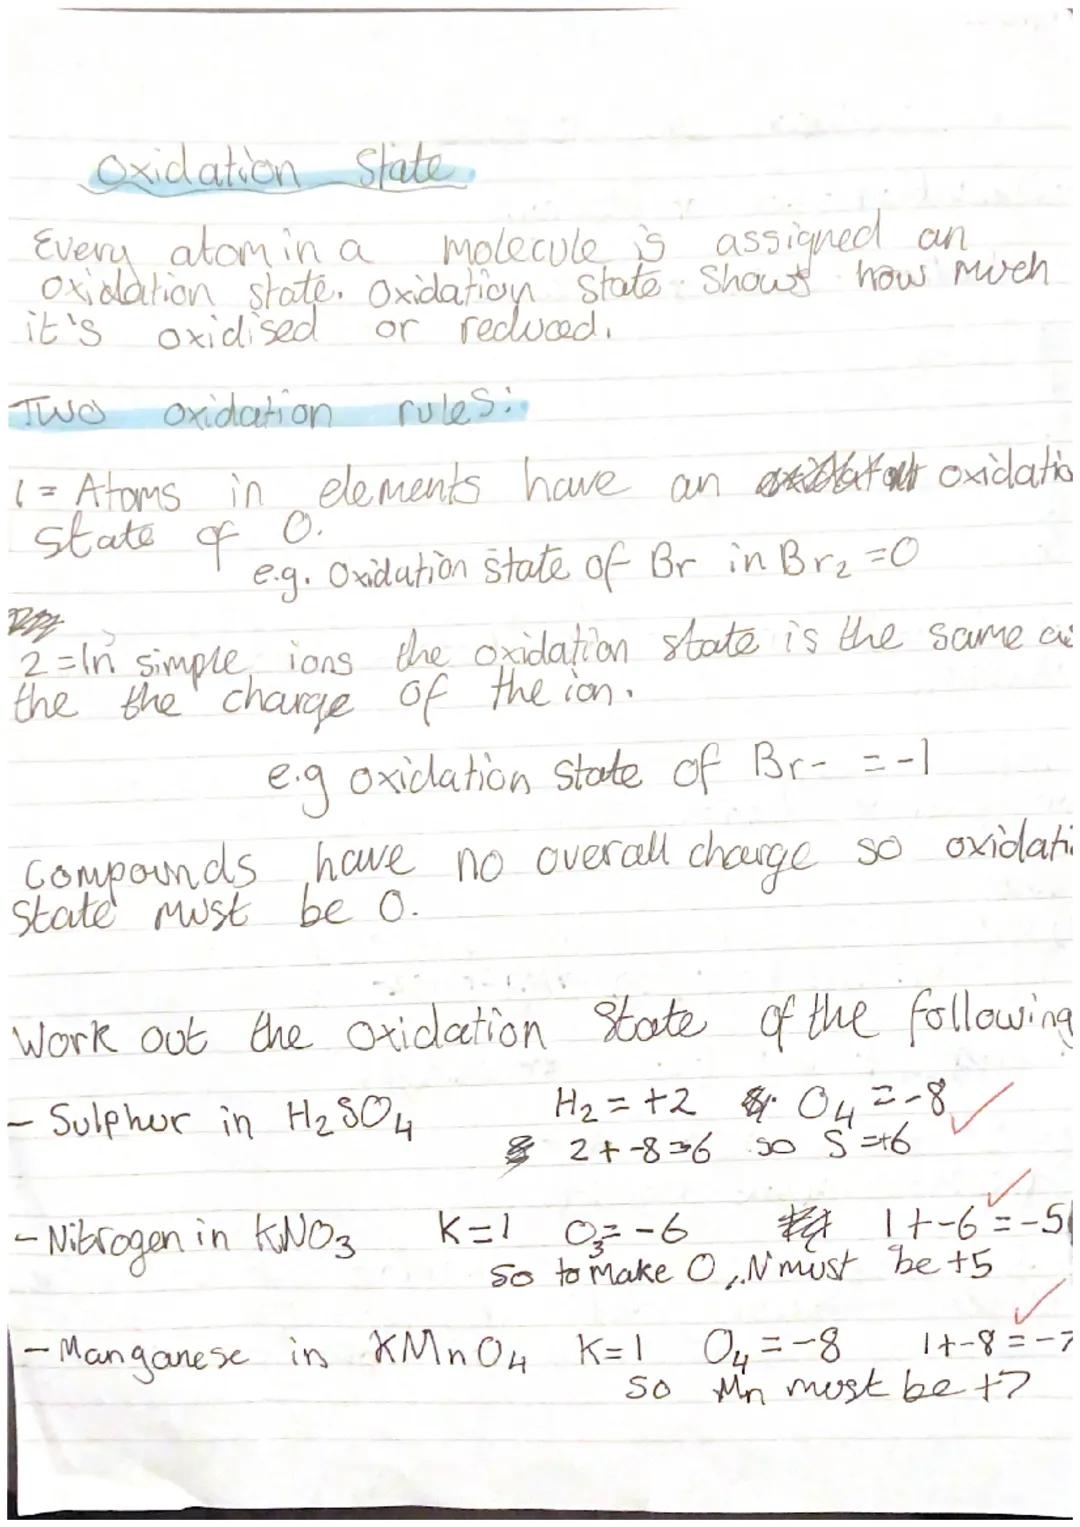 Oxidation State
Every atom in a molecule is assigned an
oxidation state. Oxidation State Shows how much
it's oxidised or reduced.
Two oxidation rules:
1 = Atoms in elements have an oxidatio
state of 0.
e.g. Oxidation state of Br in Br₂ = 0
2 = In simple ions the oxidation state is the same as
the the charge of the ion.
e.g oxidation state of Br- = -1
Compounds have no overall charge so oxidati
state must be 0.
Work out the oxidation State of the following
- Sulphur in H₂SO₄ H₂ = +2 O₄ = -8
2 + -8 = 6 so S = +6
- Nitrogen in KNO₃ K = 1 O₃ = -6 1 + -6 = -5
so to make 0, N must be +5
- Manganese in KMnO₄ K = 1 O₄ = -8 1 + -8 = -7
so Mn must be +7